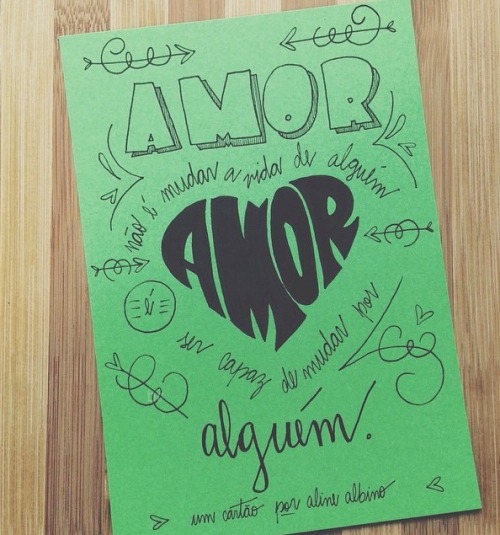 AMOR
não é mudar a vida de alguém
AMOR
é
ser capaz de mudar por
alguém.
um cartão por aline albino